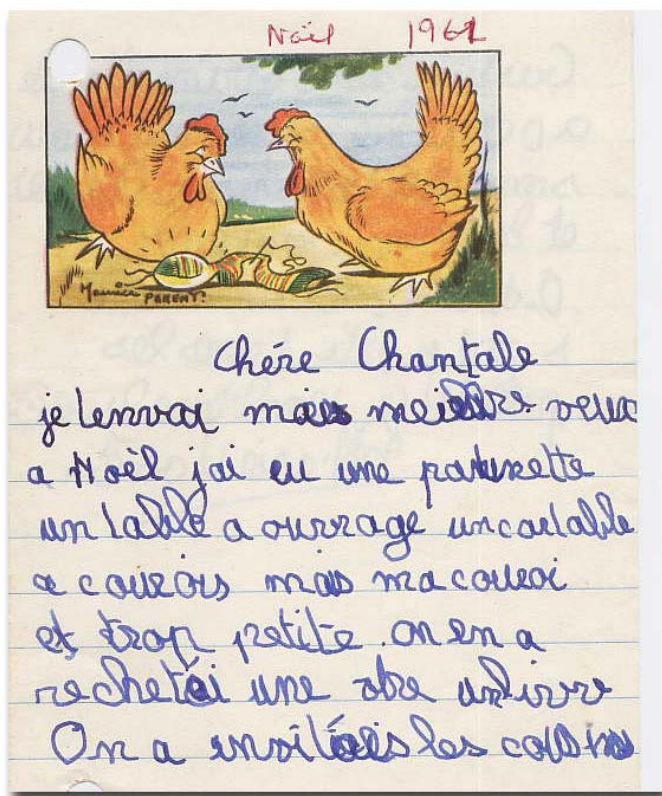 Noël 1961
Maurice PARENT.
Chére Chantale
je tenvoi mes meillere veux
a Noël jai eu une
un table a ouvrage uncartable
a courois mas ma couroi
et trop petite on en a
rechetéi une otre unlivre
On a invitéis les cousins